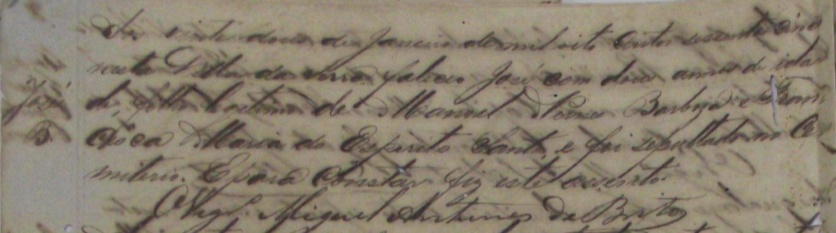 de Janeiro de mil oito centos secenta e cinco
nesta Villa da Serra faleceo José com dous annos de ida
José
de, filho legitimo de Manoel Nunes Barboza e Fran
cisca Maria do Espirito Santo, e foi sepultado no Ce
miterio. E para constar fiz este acento.
O Vigr.º Miguel Antunes de Brito